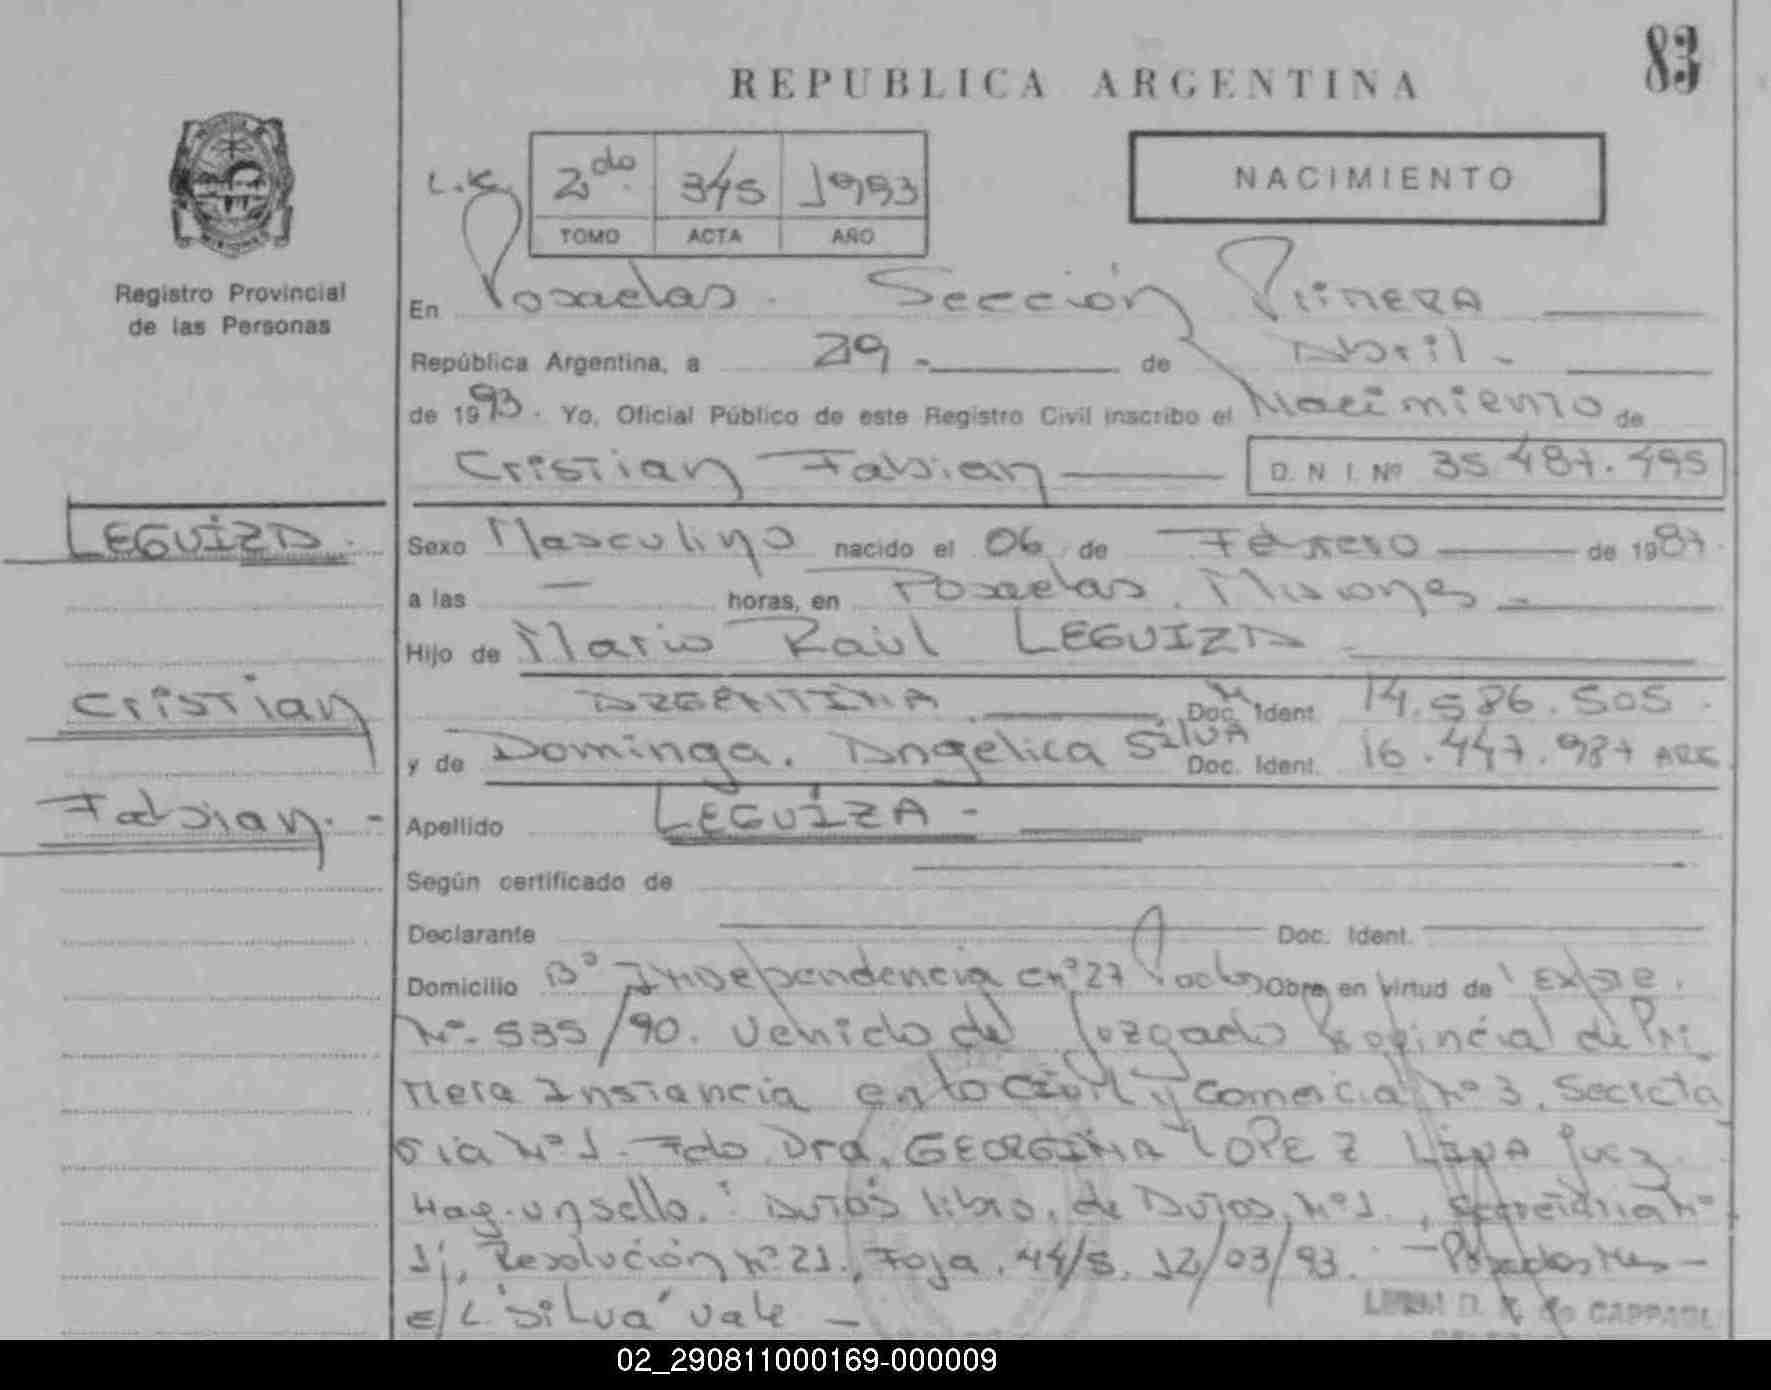 83
REPUBLICA ARGENTINA
2do 345 1993
TOMO ACTA AÑO
NACIMIENTO
Registro Provincial
de las Personas
En Posadas. Sección Primera
República Argentina, a 29.- de Abril -
de 1993. Yo, Oficial Público de este Registro Civil inscribo el Nacimiento de
Cristian Fabian D.N.I. Nº 35.487.495
LEGUIZA.
Sexo Masculino nacido el 06 de Febrero de 1987.
a las — horas, en Posadas, Misiones -
Hijo de Mario Raúl LEGUIZA
Cristian
ARGENTINA Doc. Ident. 14.586.505.
y de Dominga. Angelica Silva Doc. Ident. 16.447.987 ARG.
Fabian.-
Apellido LEGUÍZA -
Según certificado de
Declarante Doc. Ident.
Domicilio Bº Independencia cnº27 Pdas Obra en virtud de Expte.
Nº 535/90. venido del Juzgado Provincial de Pri
mera Instancia en lo Civil y Comercial Nº 3. Secreta
ria Nº1. Fdo. Dra. GEORGINA LOPEZ Juez.
Hay un sello. Autos libro, de Autos, Nº1., Secretaria Nº
1, Resolución Nº21., Foja. 44/5. 12/03/93. - Posadas Mnes -
E/L "Silva" vale -
02_290811000169-000009